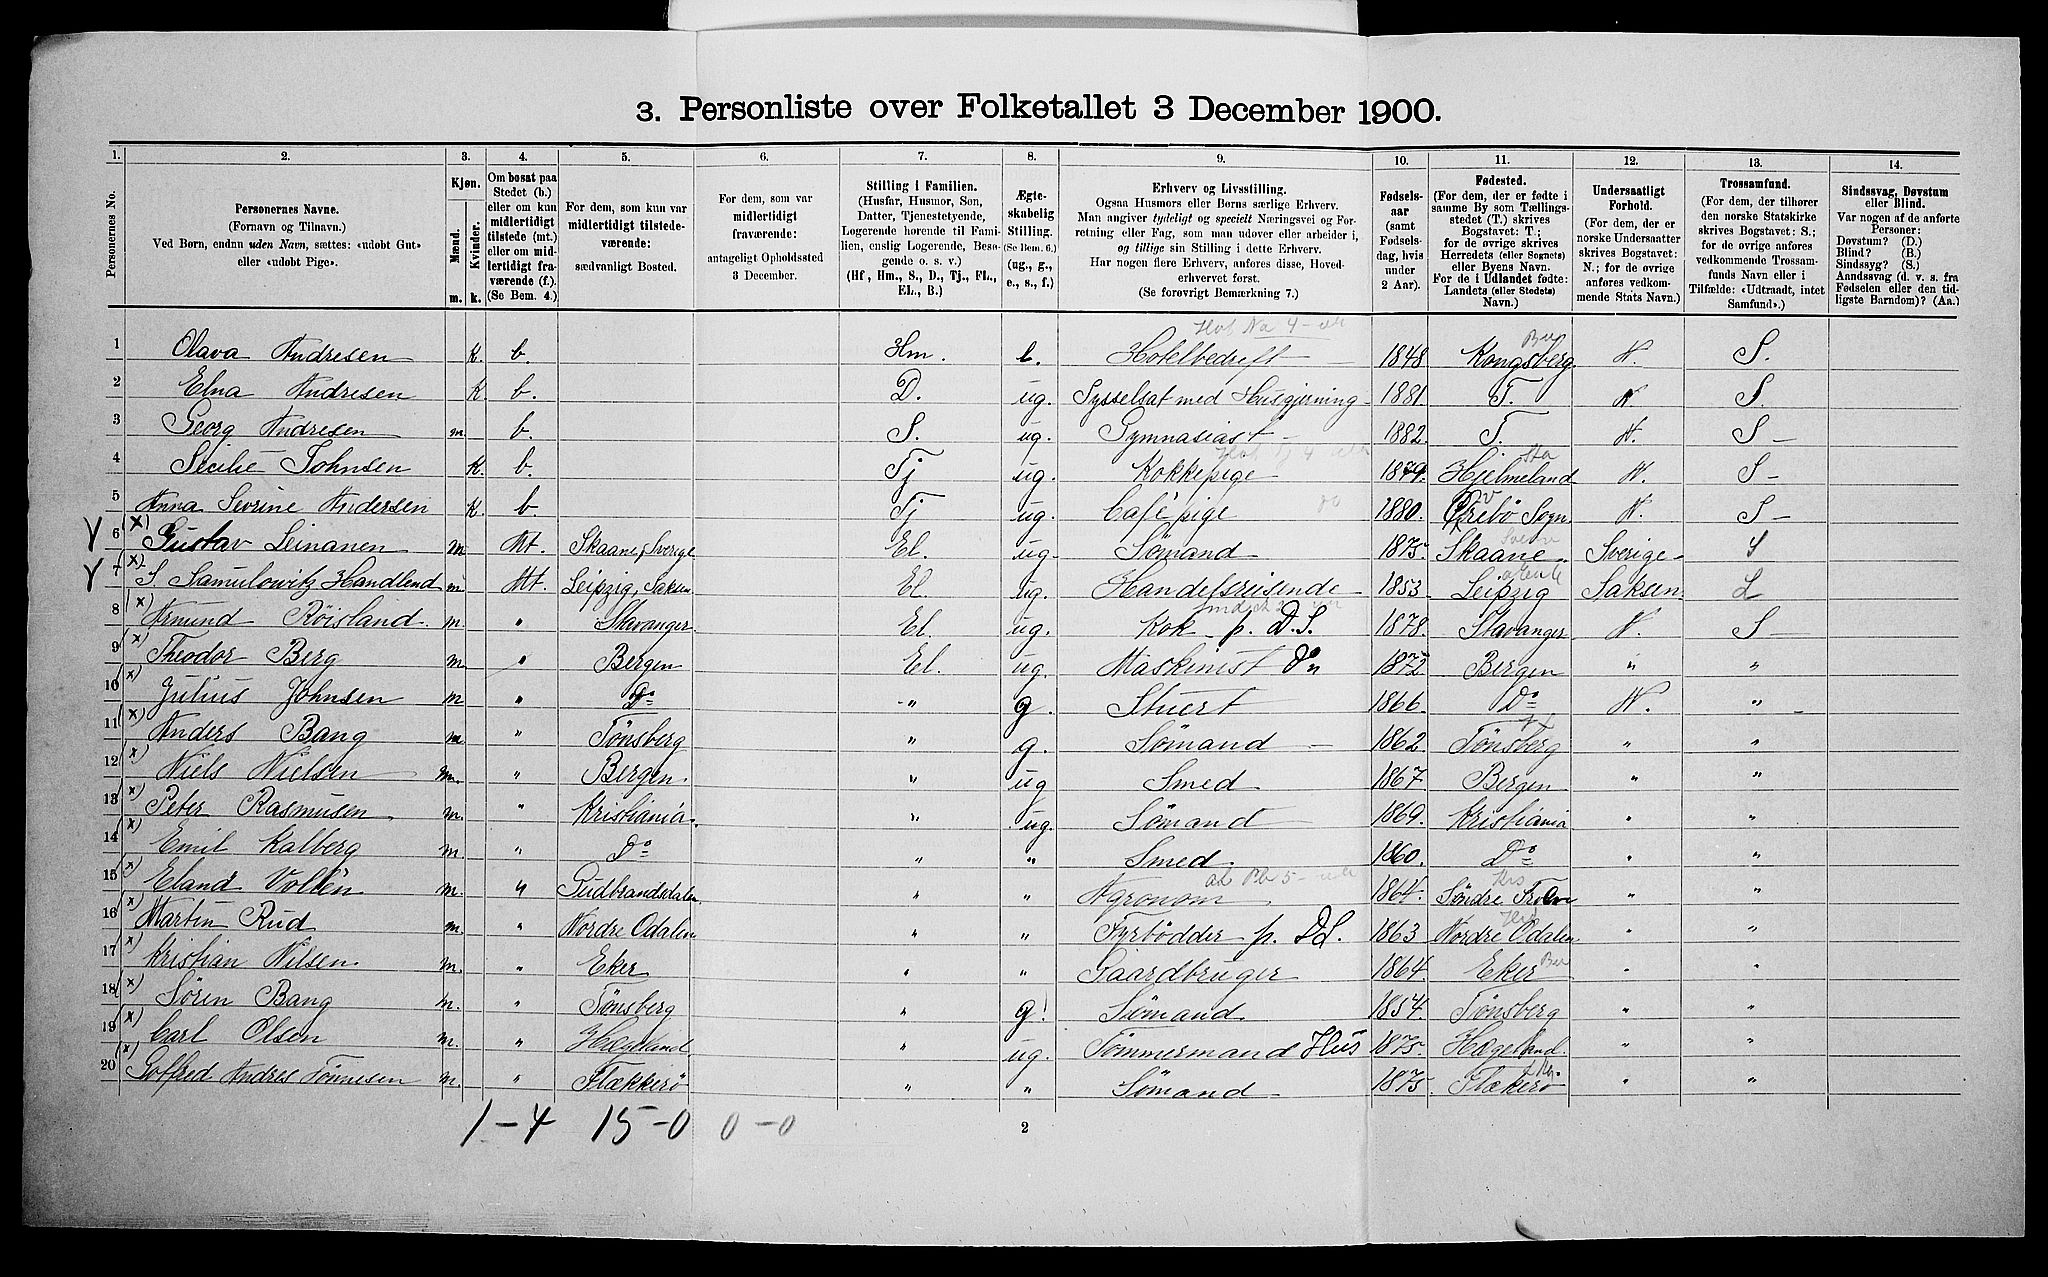 3. Personliste over Folketallet 3 December 1900.
1. 2. 3. 4. 5. 6. 7. 8. 9. 10. 11. 12. 13. 14.
Personernes No.
Personernes Navne.
(Fornavn og Tilnavn.)
Ved Børn, endnu uden Navn, sættes: «udøbt Gut»
eller «udøbt Pige».
Kjøn.
Mænd.
Kvinder.
m. k.
Om bosat paa
Stedet (b.)
eller om kun
midlertidigt
tilstede (mt.)
eller om mid-
lertidigt fra-
værende (f.).
(Se Bem. 4.)
For dem, som kun var
midlertidigt tilstede-
værende:
sædvanligt Bosted.
For dem, som var
midlertidigt
fraværende:
antageligt Opholdssted
3 December.
Stilling i Familien.
(Husfar, Husmor, Søn,
Datter, Tjenestetyende,
Logerende hørende til Fami-
lien, enslig Logerende, Besø-
gende o. s. v.)
(Hf, Hm., S., D., Tj., FL.,
EL., B.)
Ægte-
skabelig
Stilling.
(Se Bem. 6.)
(ug., g.,
e., s., f.)
Erhverv og Livsstilling.
Ogsaa Husmors eller Børns særlige Erhverv.
Man angiver tydeligt og specielt Næringsvei og For-
retning eller Fag, som man udøver eller arbeider i,
og tillige sin Stilling i dette Erhverv.
Har nogen flere Erhverv, anføres disse, Hoved-
erhvervet først.
(Se forøvrigt Bemærkning 7.)
Fødsels-
aar
(samt
Fødsels-
dag, hvis
under
2 Aar).
Fødested.
(For dem, der er fødte i
samme By som Tællings-
stedet (T.) skrives
Bogstavet: T.;
for de øvrige skrives
Herredets (eller Sognets)
eller Byens Navn.
For de i Udlandet fødte:
Landets (eller Stedets)
Navn.)
Undersaatligt
Forhold.
(For dem, der er
norske Undersaatter
skrives Bogstavet:
N.; for de øvrige
anføres vedkom-
mende Stats Navn.)
Trossamfund.
(For dem, der tilhører
den norske Statskirke
skrives Bogstavet: S.;
for de øvrige anføres
vedkommende Trossam-
funds Navn eller i
Tilfælde: «Udtraadt, intet
Samfund».)
Sindssvag, Døvstum
eller Blind.
Var nogen af de anførte
Personer:
Døvstum? (D.)
Blind? (B.)
Sindssyg? (S.)
Aandssvag (d. v. s. fra
Fødselen eller den tid-
ligste Barndom)? (Aa.)
1 Olava Andresen K. b. Hm. e. Hotelbedrift 1848 Kongsberg N. S.
2 Elna Andresen K b. D. ug. Sysselsat med Husgjerning 1881. T. N. S.
3 Georg Andresen m b. S. ug. Gymnasiast 1882. T. N. S
4 Secilie Johnsen K. b. Tj ug. Kokkepige Hjelmeland N. S
5 Anna Sevrine Andersen K. b. Tj ug. Café pige 1880. Sogn N. S
6 (x) Gustav Leinanen m Mt. Skaane, Sverige El. ug. Sømand 1875 Skaane Sverige
7 x) S. Samulowitz Handlend m. Mt. Leipzig, Saksen El. ug. Handelsreisende 1853 Leipzig Saksen
8 (x) Amund Röisland m. " Stavanger El. ug. Kok p. D.S. 1878. Stavanger N. S
9 x) Theodor Berg m. " Bergen El. ug. Maskinist Do 1872 Bergen " "
10 x) Julius Johnsen m " Do " g. Stuert 1866. Do N. "
11 (x) Anders Bang m " Tönsberg " g. Sömand 1862. Tönsberg " "
12 (x) Niels Nielsen m. " Bergen. " ug Smed 1867. Bergen " "
13 (x) Peter Rasmusen m. " Kristiania " ug. Sömand 1869. Kristiania " "
14 (x) Emil Kalberg m. " Do " " Smed. 1860. Do " "
15 (x) Eland Vollen m. " Gudbrandsdalen " " Agronom 1864. Söndre " "
16 (x) Martin Rud m. " Nordre Odalen " " Fyrbödder p. D.S. 1863 Nordre Odalen " "
17 (x) Kristian Nilsen m. " Eker " " Gaardbruger 1864 Eker " "
18 (x) Sören Bang m. " Tönsberg " g. Sömand 1854. Tönsberg " "
19 (x) Carl Olsen m. " Hægeland " ug. Tömmermand Hus 1875. Hægeland. " "
20 (x) Gotfred Andres Tönnesen m. " Flækkerö " " Sömand 1875. Flækerö " "
1-4 15-0 0-0
2